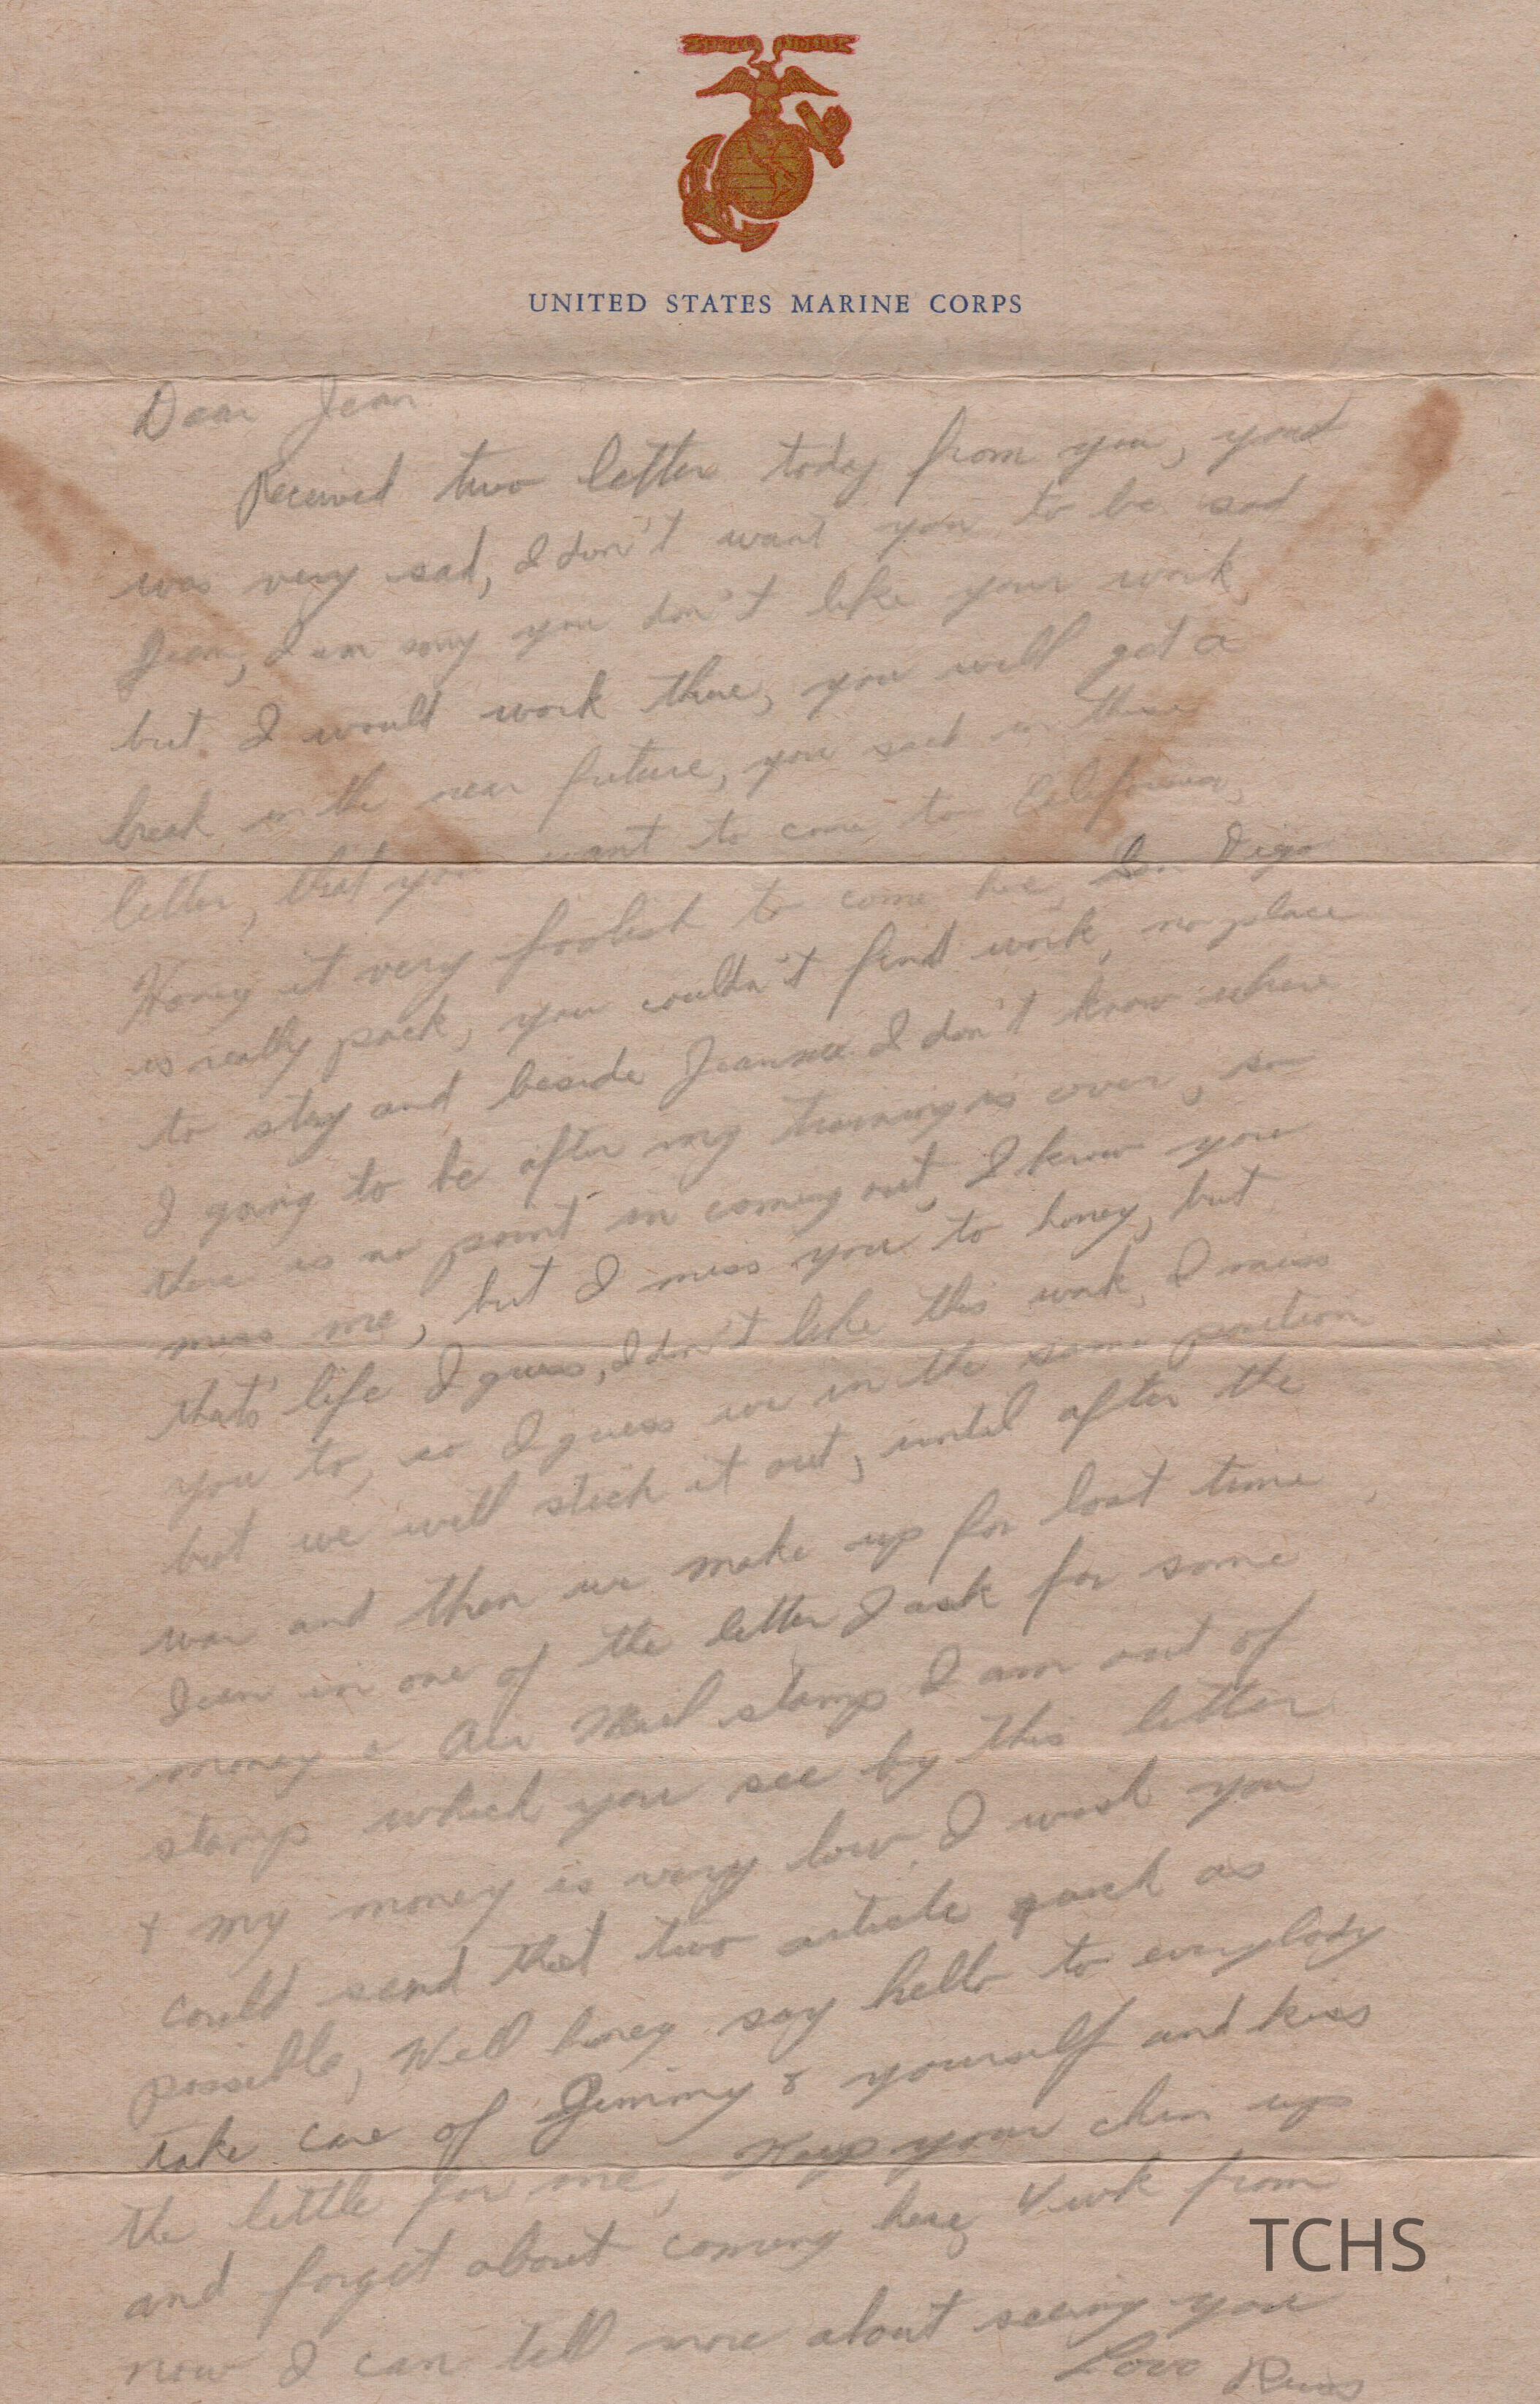 SEMPER FIDELIS
UNITED STATES MARINE CORPS
Dear Jean
Received two letter today from you, your
was very sad, I don't want you to be sad
Jean, I am sorry you don't like your work
but I would work there, you will get a
break in the near future, you said in these
letter, that you want to come to California,
Honey it very foolish to come here, San Diego
is really pack, you couldn't find work, no place
to stay and beside Jean I don't know where
I going to be after my training is over, so
there is no point in coming out, I know you
miss me, but I miss you to honey, but
that's life I guess, I don't like this work, I miss
you to, so I guess we in the same position
but we will stick it out, until after the
war and then we make up for lost time
Jean in one of the letter I ask for some
money & Air Mail stamp I am out of
stamp which you see by this letter
+ my money is very low. I wish you
could send that two article quick as
possible, Well honey say hello to everybody
take care of Jimmy & yourself and kiss
the little for me, Keep your chin up
and forget about coming here, 4 week from
now I can tell more about seeing you
Love
TCHS